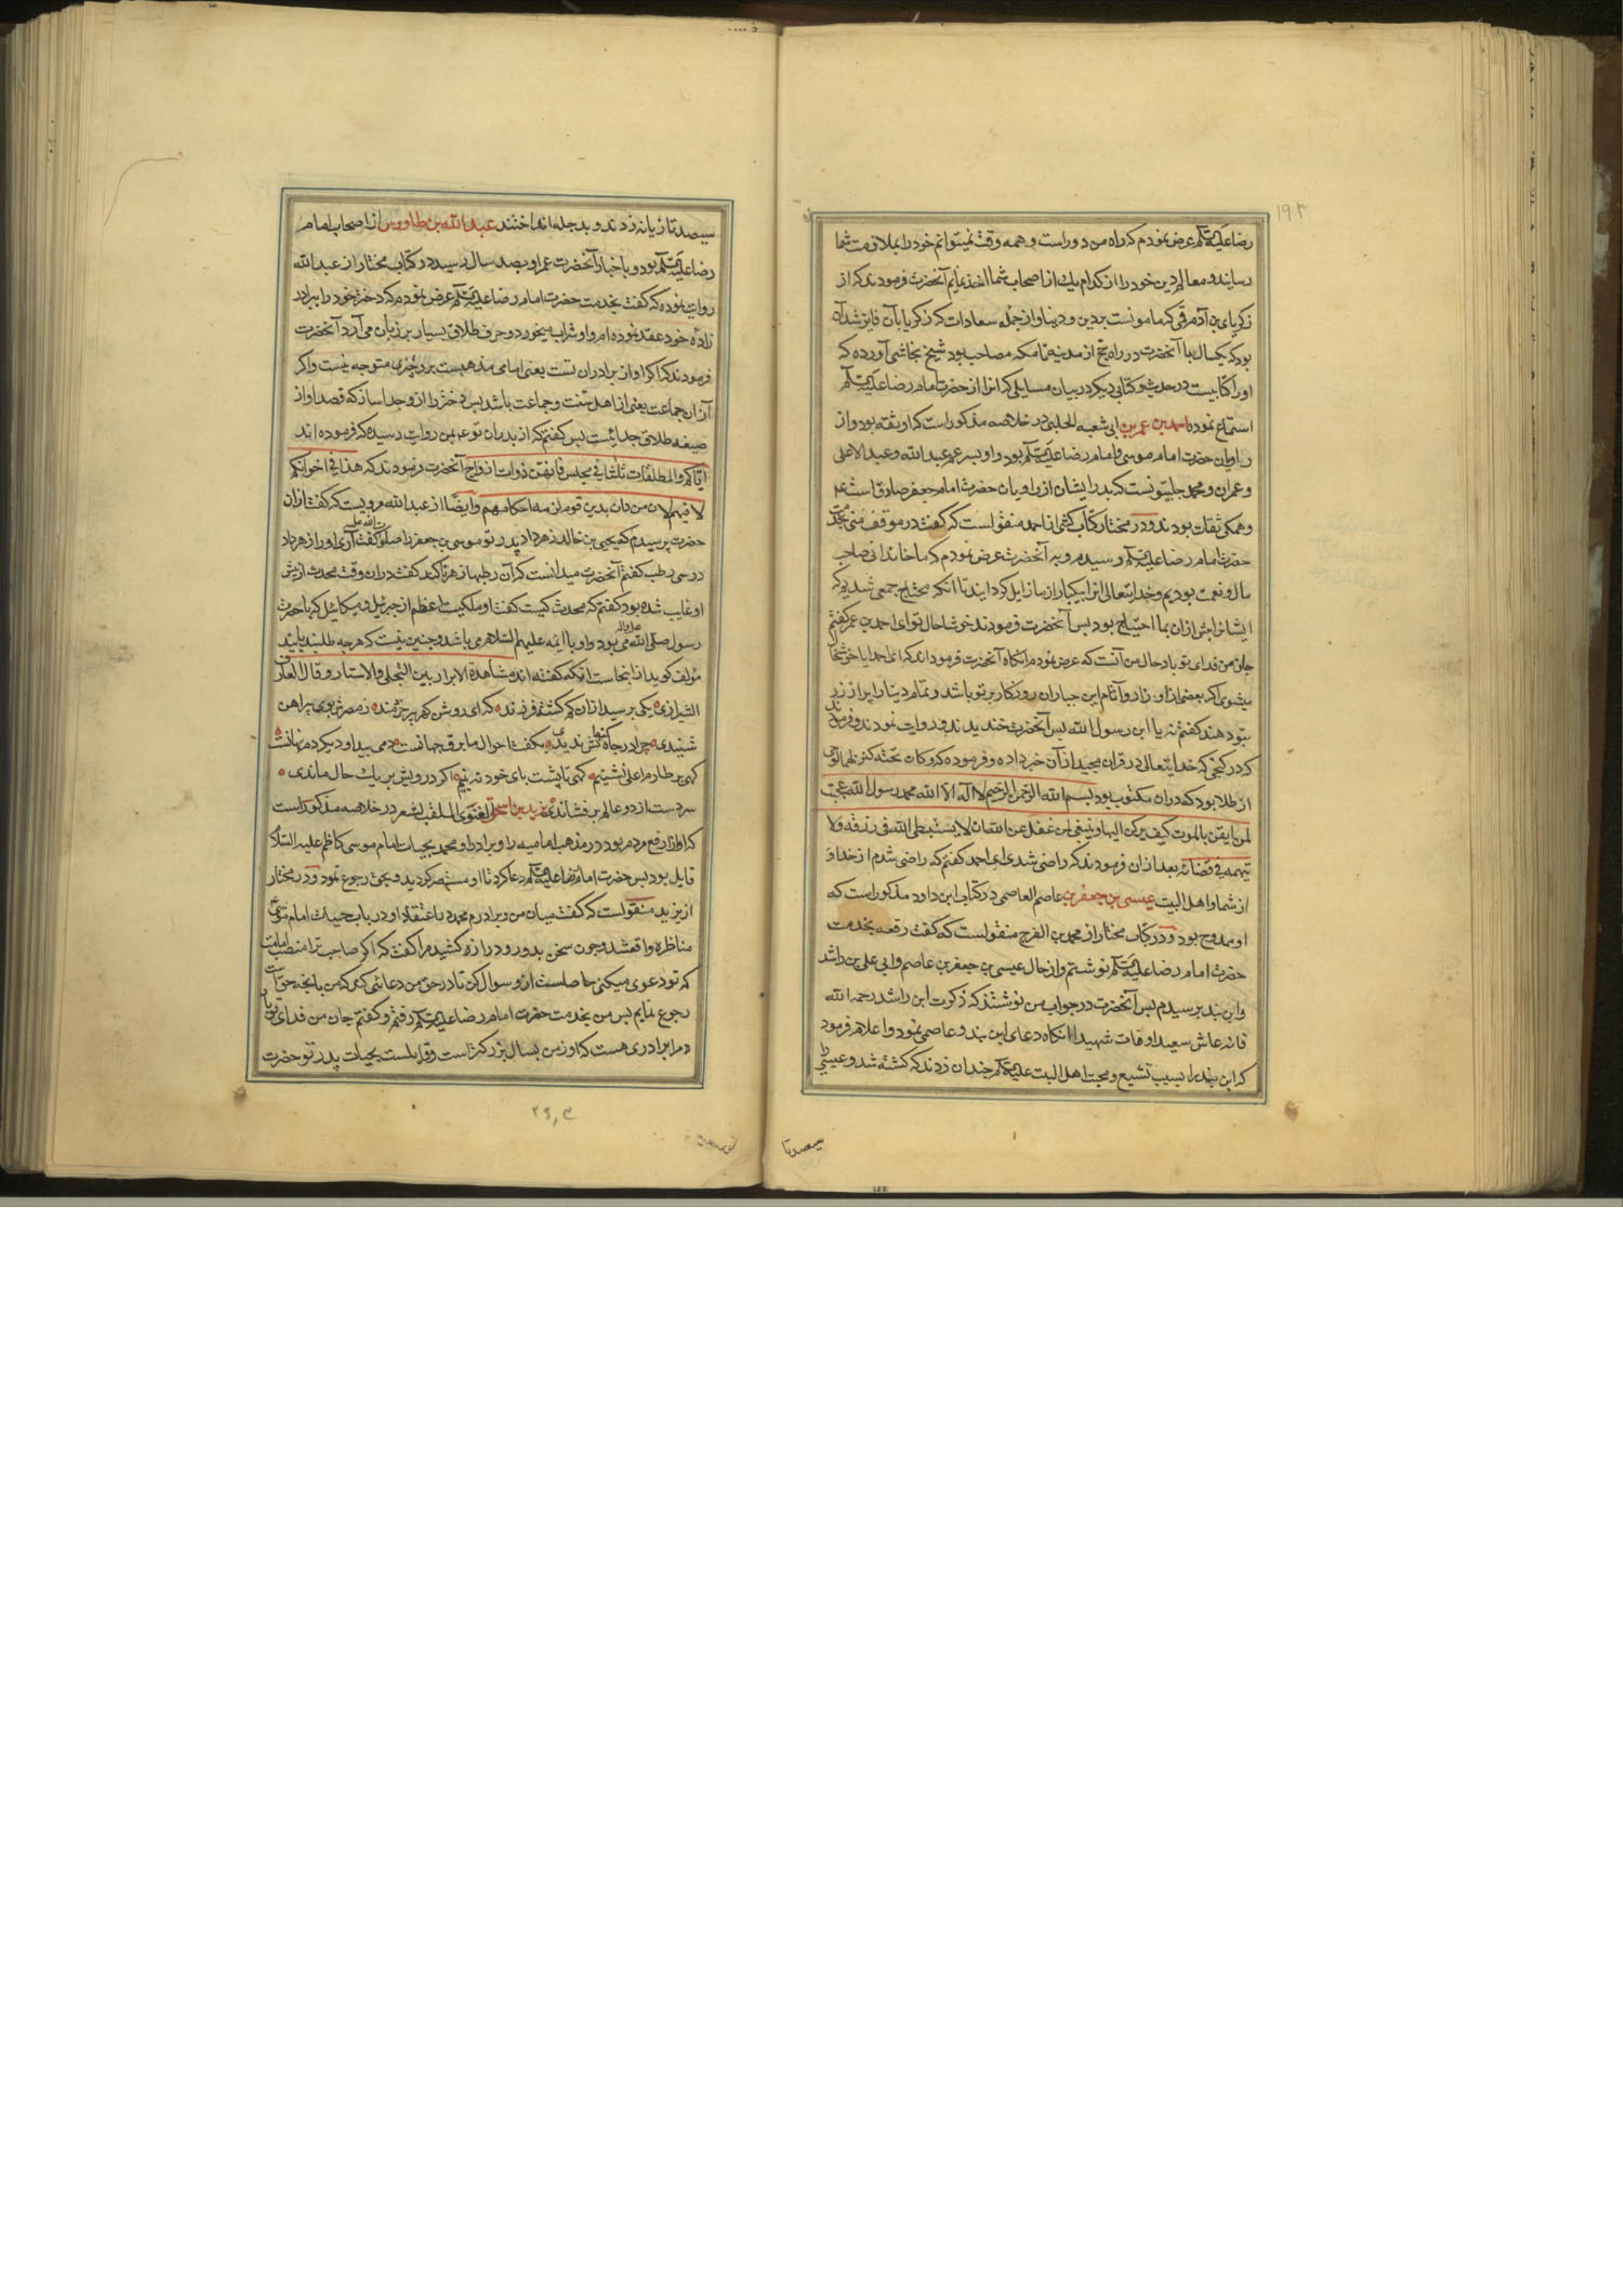 ۱۹۳
رضا علیه السلام عرض نمودم که راه من دور است و همه وقت نمیتوانم خود را بملازمت شما
رسانید و معالم دین خود را از کدام یک از اصحاب شما اخذ نمایم آنحضرت فرمودند که از
زکریای بن آدم قمی که مامونست بر دین و دنیا و از جمله سعادات که زکریا بآن فایز شده آن
بود که یکسال با آنحضرت در راه حج از مدینه تا مکه مصاحب بود شیخ نجاشی آورده که
او را کتابیست در حدیث و کتابی دیگر در بیان مسایلی که انرا از حضرت امام رضا علیه السلام
استماع نموده احمد بن عمر بن ابی شعبه الحلبی در خلاصه مذکور است که او ثقه بود و از
راویان حضرت امام موسی و امام رضا علیه السلام بود و او پسر عم عبد الله و عبد الاعلی
و عمران و محمد حلبیونست که پدر ایشان از راویان حضرت امام جعفر صادق است ع
و همکی ثقات بودند و در مختار کتاب کشی از احمد منقولست که گفت در موقف منی بخدمت
حضرت امام رضا علیه السلام رسیدم و به آنحضرت عرض نمودم که ما خاندانی صاحب
مال و نعمت بودیم و خدایتعالی انرا بیکبار از ما زایل گردانید تا آنکه محتاج جمعی شدیم که
ایشانرا پیش ازان بما احتیاج بود پس آنحضرت فرمودند خوشا حال تو ای احمد بن عمر گفتم
جان من فدای تو باد حال من آنست که عرض نمودم آنکاه آنحضرت فرمودند که ای احمد ایا خوشحال
میشوی اگر بعضی از اوزار و آثام این جباران روزکار بر تو باشد و تمام دنیا را پر از زر
بتو دهند گفتم نه یا ابن رسول الله پس آنحضرت خندیدند و روایت نمودند و فرمودند
که در کنجی که خدایتعالی در قران مجید از آن خبر داده و فرموده که وکان تحته کنز لهما لوحی
از طلا بود که دران مکتوب بود بسم الله الرحمن الرحیم لا اله الا الله محمد رسول الله عجبت
لمن ایقن بالموت کیف یرکن الیها و ینبغی لمن غفل عن الله ان لا یستبطی الله فی رزقه ولا
یتهمه فی قضائه بعد ازان فرمودند که راضی شدی ای احمد گفتم که راضی شدم از خدا و
از شما و اهل البیت عیسی بن جعفر بن عاصم العاصمی در کتاب ابن داود مذکور است که
او ممدوح بود و در کتاب مختار از محمد بن الفرج منقولست که گفت رقعه بخدمت
حضرت امام رضا علیه السلام نوشتم و از حال عیسی بن جعفر بن عاصم و ابی علی بن راشد
و ابن بند پرسیدم پس آنحضرت در جواب من نوشتند که ذکرت ابن راشد رحمه الله
فانه عاش سعیدا و مات شهیدا آنکاه دعای ابن بند و عاصمی نمود و اعلام فرمود
که ابن بند را بسبب تشیع و محبت اهل البیت علیهم السلام چندان زدند که کشته شد و عیسی را
سیصد تا
سیصد تازیانه زدند و بدجله انداختند عبد الله بن طاووس از اصحاب امام
رضا علیه السلام بود و باخبار آنحضرت عمر او بصد سال رسید در کتاب مختار از عبد الله
روایت نموده که گفت بخدمت حضرت امام رضا علیه السلام عرض نمودم که دختر خود را ببرادر
زاده خود عقد نموده ام و او شراب میخورد و حرف طلاق بسیار بر زبان می آرد آنحضرت
فرمودند که اگر او از برادران تست یعنی امامی مذهبست بر و چیزی متوجه نیست و اگر
از آن جماعت یعنی از اهل سنت و جماعت باشد پس دختر را از و جدا ساز که قصد او از
صیغه طلاق جدائیست پس گفتم که از پدران تو ع بمن روایت رسیده که فرموده اند
ایاکم و المطلقات ثلثا فی مجلس فانهن ذوات ازواج آنحضرت فرمودند که هذا فی اخوانکم
لا فیهم لان من دان بدین قوم لزمه احکامهم و ایضا از عبد الله مرویست که گفت ازان
حضرت پرسیدم که یحیی بن خالد زهر داد پدر تو موسی بن جعفر را صلوات الله علیه گفت آری او را زهر داد
در سی رطب گفتم آنحضرت میدانست که آن رطبها زهرناکند گفت دران وقت محدث از پیش
او غایب شده بود گفتم که محدث کیست گفت او ملکیست اعظم از جبرئیل و میکائیل که با حضرت
رسول صلی الله علیه واله می بود و او با ائمه علیهم السلام می باشد و چنین نیست که هر چه طلبند یابند
مؤلف گوید از اینجاست آنکه گفته اند مشاهدة الابرار بین التجلی و الاستار و قال العارف
الشیرازی یکی پرسید ازان گم کشته فرزند که ای روشن گهر پیر خردمند ز مصرش بوی پیراهن
شنیدی چرا در چاه کنعانش ندیدی بگفت احوال ما برق جهانست دمی پیدا و دیگر دم نهانست
گهی بر طارم اعلی نشینیم گهی تا پشت پای خود نه بینیم اگر درویش بر یک حال ماندی
سر دست از دو عالم بر فشاندی یزید بن اسحق الغنوی الملقب بشعر در خلاصه مذکور است
که او از ارفع مردم بود در مذهب امامیه را و برادر او محمد بحیات امام موسی کاظم علیه السلام
قایل بود پس حضرت امام رضا علیه السلام دعا کرد تا او مستبصر گردید و بحق رجوع نمود و در مختار
از یزید منقولست که گفت میان من و برادرم محمد باعتقاد او در باب حیات امام موسی
مناظره واقع شد و چون سخن بدور و دراز کشید مرا گفت که اگر صاحب ترا منصب امامت
که تو دعوی میکنی حاصلست ازو سوال کن تا در حق من دعائی کند که من بانچه حق است
رجوع نمایم پس من بخدمت حضرت امام رضا علیه السلام رفتم و گفتم جان من فدای تو باد
مرا برادری هست که او ز من بسال بزرگتر است و قایلست بحیات پدر تو حضرت